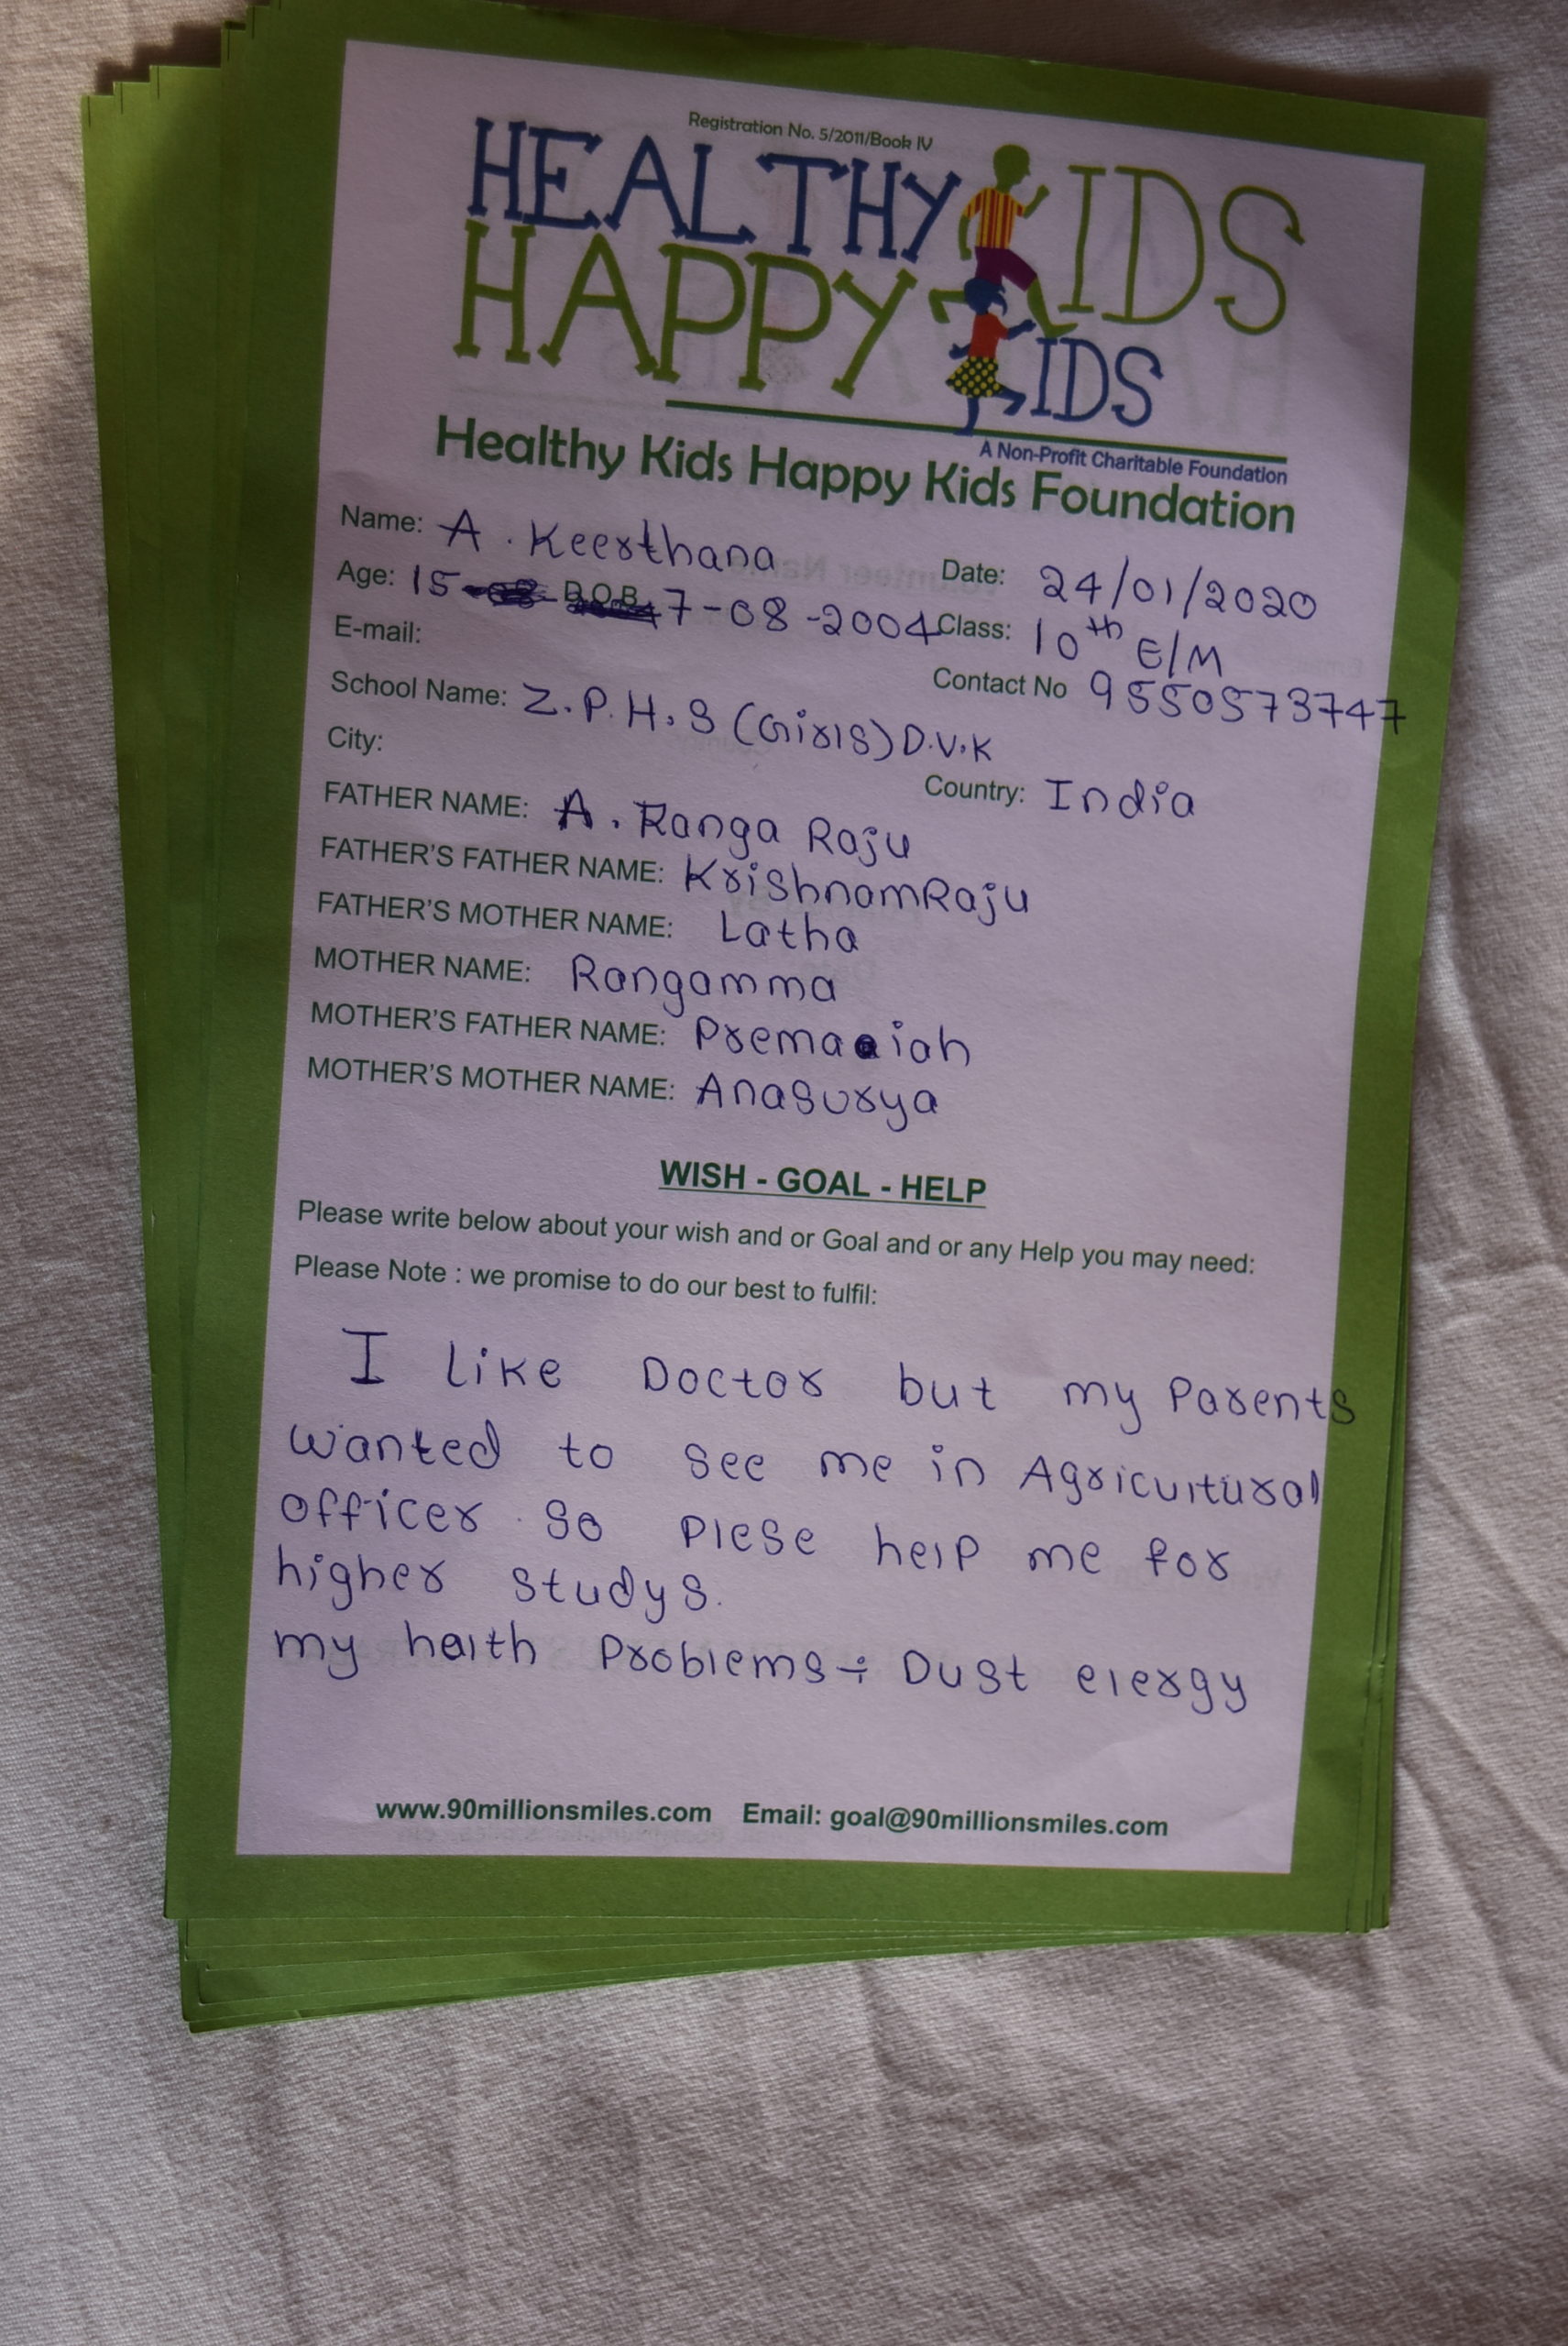 Registration No. 5/2011/Book IV
HEALTHY KIDS
HAPPY KIDS
A Non-Profit Charitable Foundation
Healthy Kids Happy Kids Foundation
Name: A. Keerthana Date: 24/01/2020
Age: 15 D.O.B. 7-08-2004 Class: 10th E/M
E-mail: Contact No 9550573747
School Name: Z.P.H.S (Girls) D.V.K
City: Country: India
FATHER NAME: A. Ranga Raju
FATHER'S FATHER NAME: KrishnamRaju
FATHER'S MOTHER NAME: Latha
MOTHER NAME: Rangamma
MOTHER'S FATHER NAME: Premaiah
MOTHER'S MOTHER NAME: Anasurya
WISH - GOAL - HELP
Please write below about your wish and or Goal and or any Help you may need:
Please Note : we promise to do our best to fulfil:
I like Doctor but my Parents
wanted to see me in Agricultural
officer so Plese help me for
higher studys.
my helth Problems ÷ Dust elergy
www.90millionsmiles.com Email: goal@90millionsmiles.com